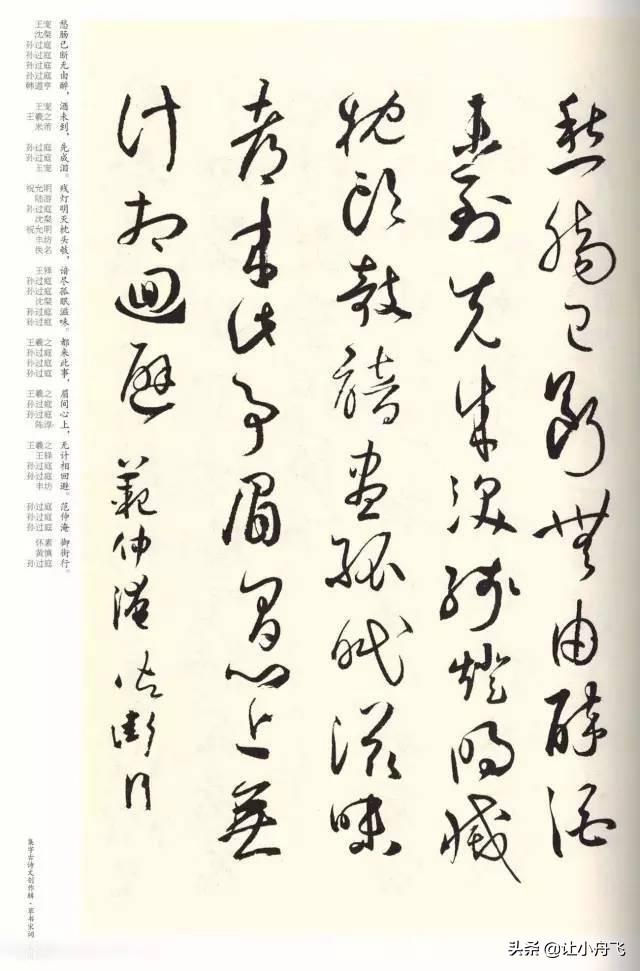 愁腸已斷無由醉酒
未到先成淚殘燈明滅
枕頭敧諳盡孤眠滋味
都來此事眉間心上無
計相迴避 范仲淹御街行
王宠 愁
沈粲 肠
孙过庭 已
孙过庭 断
孙过庭 无
孙过庭 由
韩道亨 醉，
王宠 酒
王羲之 未
米芾 到，
孙过庭 先
孙过庭 成
王宠 泪。
祝允明 残
陆游 灯
孙过庭 明
沈粲 灭
祝允明 枕
丰坊 头
佚名 敧，
王铎 谙
孙过庭 尽
孙过庭 孤
沈粲 眠
孙过庭 滋
孙过庭 味。
王羲之 都
孙过庭 来
孙过庭 此
孙过庭 事，
王羲之 眉
孙过庭 间
孙过庭 心
陈淳 上，
王羲之 无
王铎 计
孙过庭 相
孙过庭 回
丰坊 避。
孙过庭 范
孙过庭 仲
孙过庭 淹
怀素 御
黄慎 街
孙过庭 行。
集字古诗文创作辑·草书宋词
头条 @让小舟飞